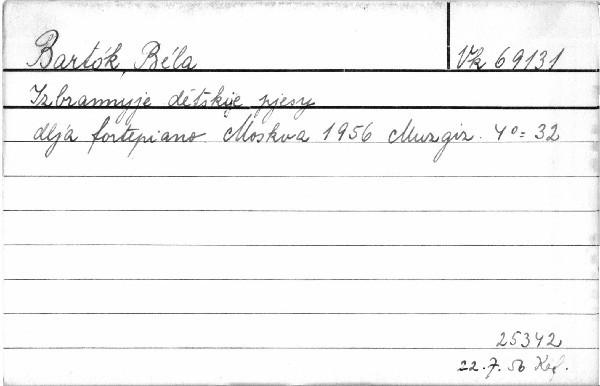 Bartók, Béla
Vk 69131
Izbrannyje dětskije pjesy
dlja fortepiano. Moskva 1956 Muzgiz. 4°= 32
25342
22.7.56 Kef.